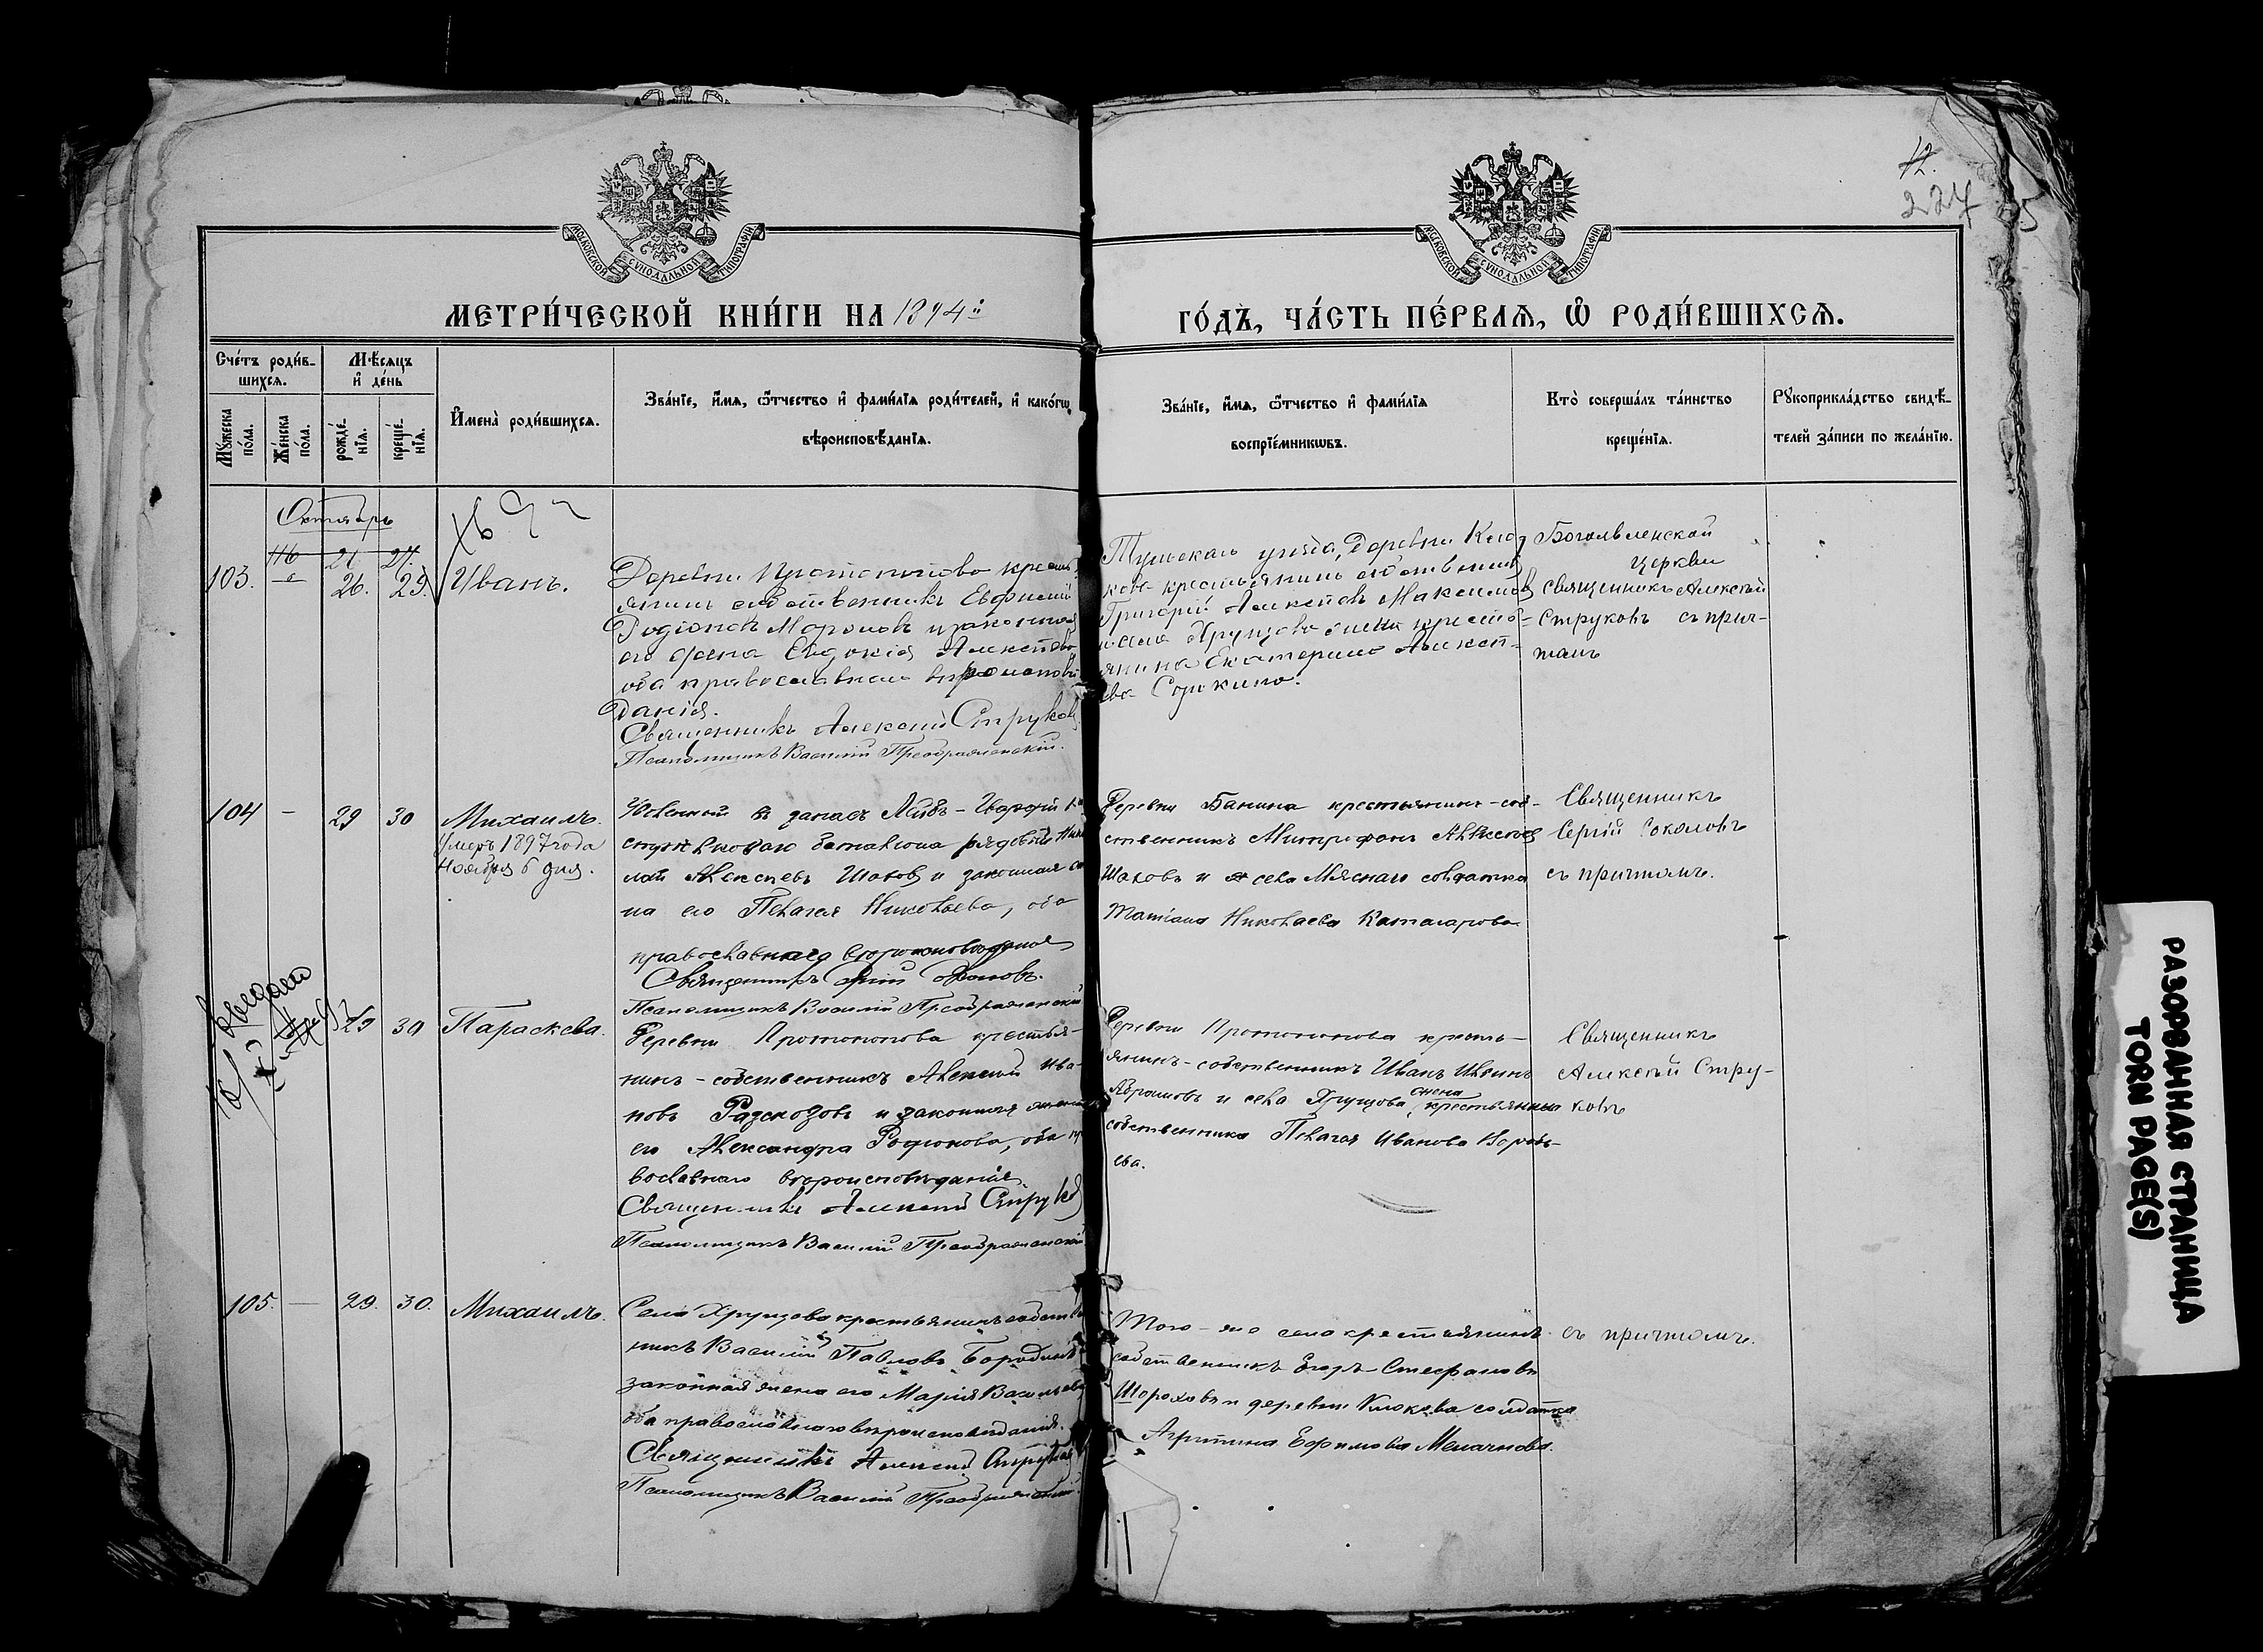 12.
224
25
МОСКОВСКОЙ СѴНОДАЛЬНОЙ ТИПОГРАФІИ
МОСКОВСКОЙ СѴНОДАЛЬНОЙ ТИПОГРАФІИ
МЕТРИ́ЧЕСКОЙ КНИ́ГИ НА 1894й
ГО́ДЪ, ЧА́СТЬ ПЕ́РВАѦ, Ѡ҆ РОДИ́ВШИХСѦ.
Сче́тъ роди́в-
шихсѧ.
Мꙋ́жеска
по́ла.
Же́нска
по́ла.
Мѣ́сѧцъ
и҆ де́нь
рожде́-
нїѧ.
креще́-
нїѧ.
И҆мена̀ роди́вшихсѧ.
Зва́нїе, и҆́мѧ, ѻ҆́тчество и҆ фами́лїѧ роди́телей, и҆ како́гѡ
вѣроисповѣ́данїѧ.
Зва́нїе, и҆́мѧ, ѻ҆́тчество и҆ фами́лїѧ
воспрїе́мникѡвъ.
Кто̀ соверша́лъ та́инство
креще́нїѧ.
Рꙋкоприкла́дство свидѣ́-
телей за́писи по жела́нїю.
Октябрь
116 21 27.
103. - 26. 29. Иванъ.
Деревни Протопопово кресть
янинъ собственникъ Евфимій
Родіоновъ Мароновъ и законная
его жена Евдокія Алексѣева
оба православнаго вѣроисповѣ
данія.
Священникъ Алексій Струковъ
Псаломщикъ Василій Преображенскій.
Тульскаго уѣзда, Деревни Клю
кова крестьянинъ собственникъ
Григорій Алексѣевъ Максимовъ
и села Хрущово жена кресть-
янина Екатерина Алексѣ-
ева Сорокина.
Богоявленской
церкви
священникъ Алексѣй
Струковъ съ прич-
томъ
104 - 29 30 Михаилъ.
Умеръ 1897 года
Ноября 6 дня.
Уволенный въ запасъ Лейбъ-Гвардіи
стрѣлковаго баталіона рядовый Нико
лай Алексѣевъ Шаховъ и законная же
на его Пелагея Николаева, оба
православнаго вѣроисповѣданія
Священникъ
Псаломщикъ Василій Преображенскій
Деревни Банина крестьянинъ-соб-
ственникъ Митрофанъ Алексѣевъ
Шаховъ и села Мяснаго солдатка
Татіана Николаева
Священникъ
Сергій Соколовъ
съ причтомъ.
29 30 Параскева.
Деревни Протопопова крестья-
нинъ-собственникъ Алексѣй Ива-
новъ и законная жена
его Александра Родіонова, оба пра
вославнаго вѣроисповѣданія
Священникъ Алексій Струковъ
Псаломщикъ Василій Преображенскій
Деревни Протопопова кресть-
янинъ-собственникъ Иванъ Ивановъ
Абрамовъ и села Хрущова жена крестьянина
собственника Пелагея Иванова Воробь-
ева.
Священникъ
Алексѣй Стру-
ковъ
105. - 29. 30. Михаилъ.
Села Хрущова крестьянинъ собствен
никъ Василій Павловъ Бородинъ
законная жена его Марія Васильева
оба православнаго вѣроисповѣданія.
Священникъ Алексій Струковъ
Псаломщикъ Василій Преображенскій.
Того-же села крестьянинъ
собственникъ Егоръ Стефановъ
Шороховъ и деревни Клюкова солдатка
Агрипина Ефимова
съ причтомъ.
РАЗОРВАННАЯ СТРАНИЦА
TORN PAGE(S)